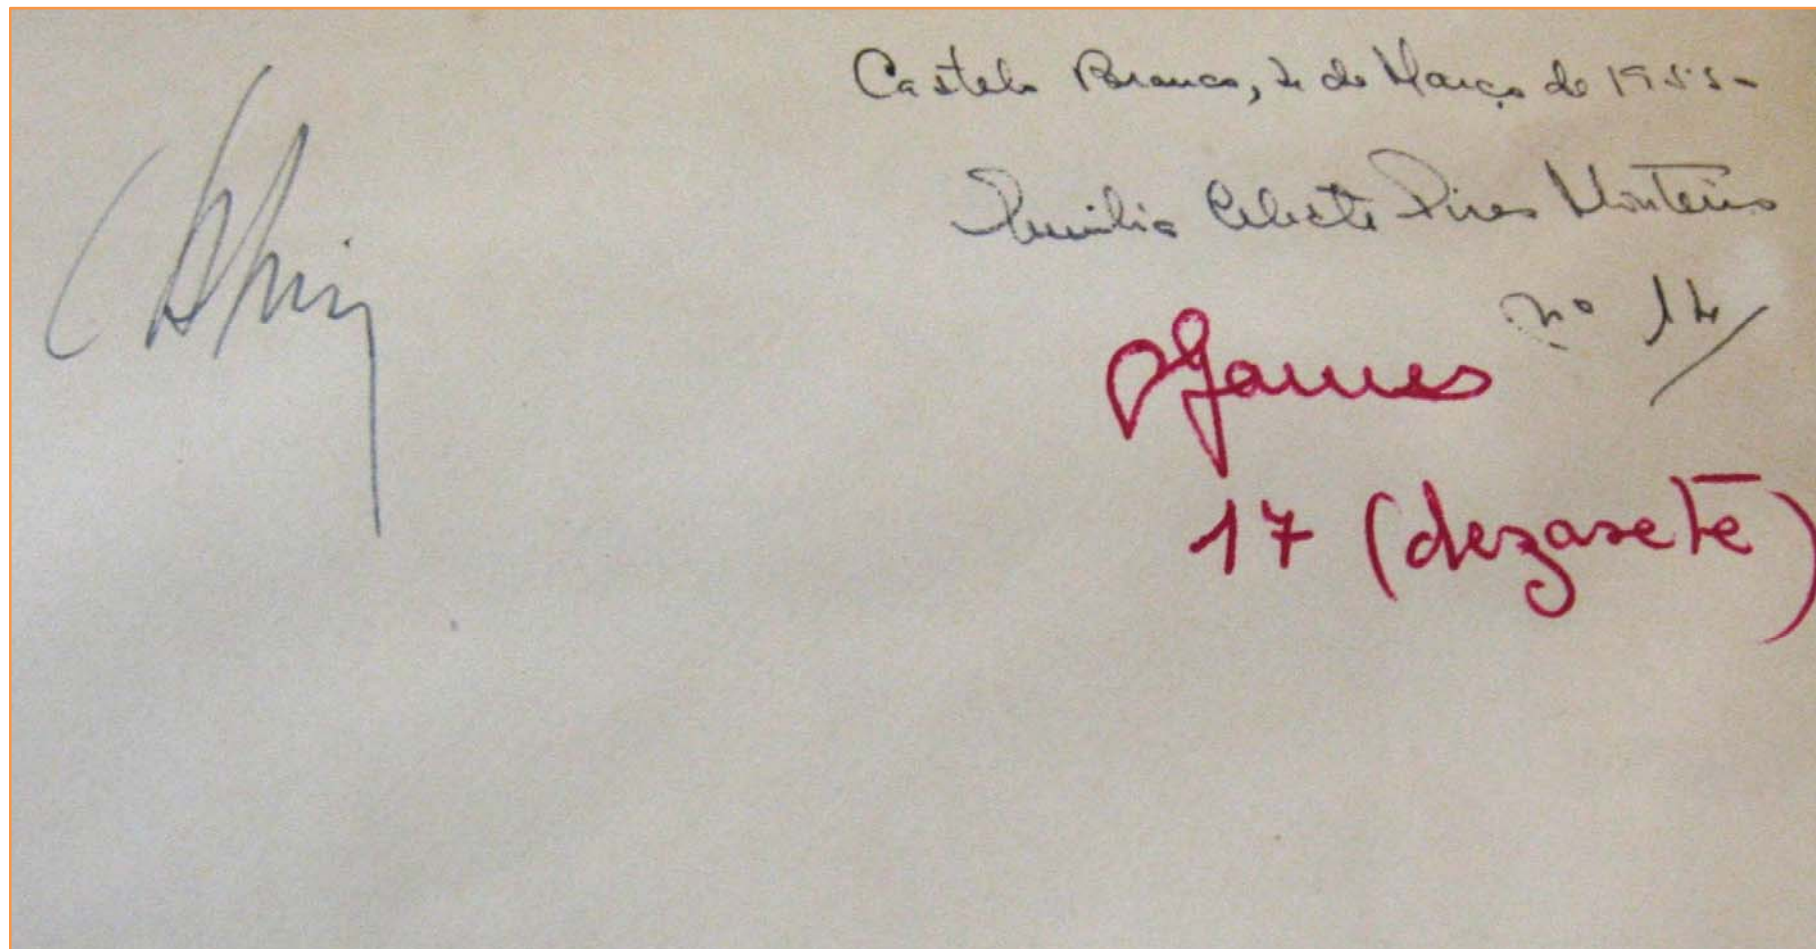 Castelo Branco, 2 de Março de 1955-
Celeste Pires Monteiro
nº 14
17 (dezasete)